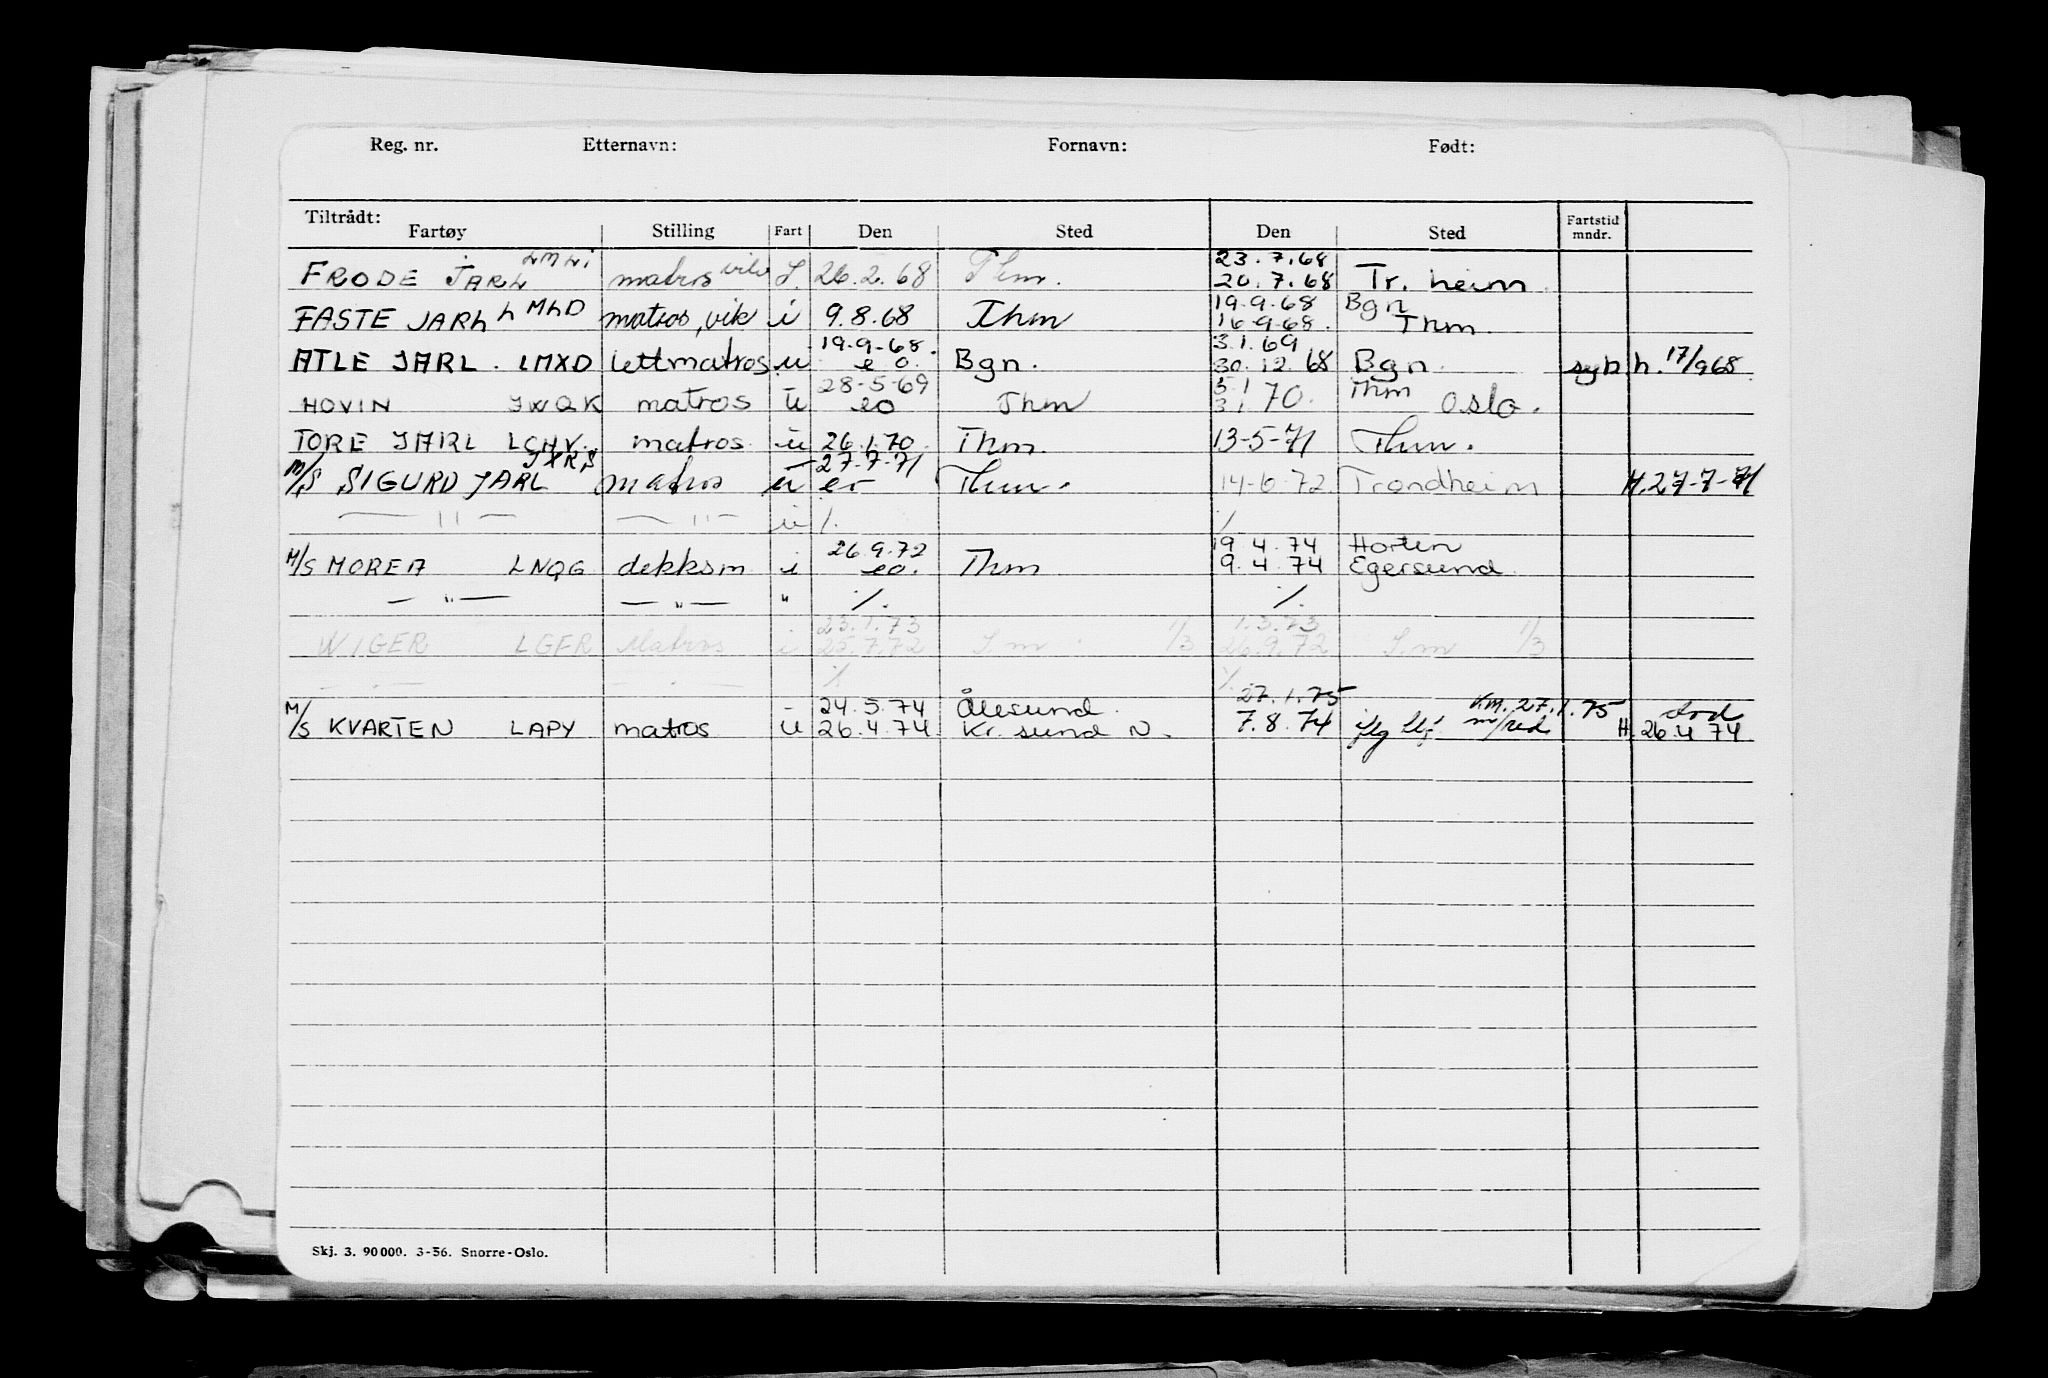 Reg. nr. Etternavn: Fornavn: Født:
Tiltrådt:
Fartøy Stilling Fart Den Sted Den Sted Fartstid mndr.
LMLI 23.7.68
FRODE JARL matros 26.2.68 Thm. 20.7.68 Tr. heim.
19.9.68 Bgn
FASTE JARL LMLD matros, vik i 9.8.68 Thm 16.9.68. Thm.
19.9.68. 3.1.69
ATLE JARL. LMXD lettmatros u e o. Bgn. 30.12.68 Bgn. h. 17/9 68
28-5-69 5.1 Thm
HOVIN JWQK matros u eo Thm 3.1.70. Oslo.
TORE JARL LCHV. matros u 26.1.70. Thm. 13-5-71 Thm.
JXRS 27-7-71
M/S SIGURD JARL matros u eo Thm. 14-6-72 Trondheim H. 27-7-71
— " — — " — u %. %
26.9.72 19.4.74 Horten
M/S MOREA LNQG dekksm i eo. Thm 9.4.74 Egersund
— " — — " — " %. %.
23.1.73 1.3.73
WIGER LGFR Matros i 25.7.72 1/3 26.9.72 1/3
— " — — " — % %
24.5.74 Ålesund. 27.1.75 27.1.75
M/S KVARTEN LAPY matros u 26.4.74. Kr. sund N. 7.8.74 m/red H. 26.4 74
Skj. 3. 90000. 3-56. Snorre-Oslo.